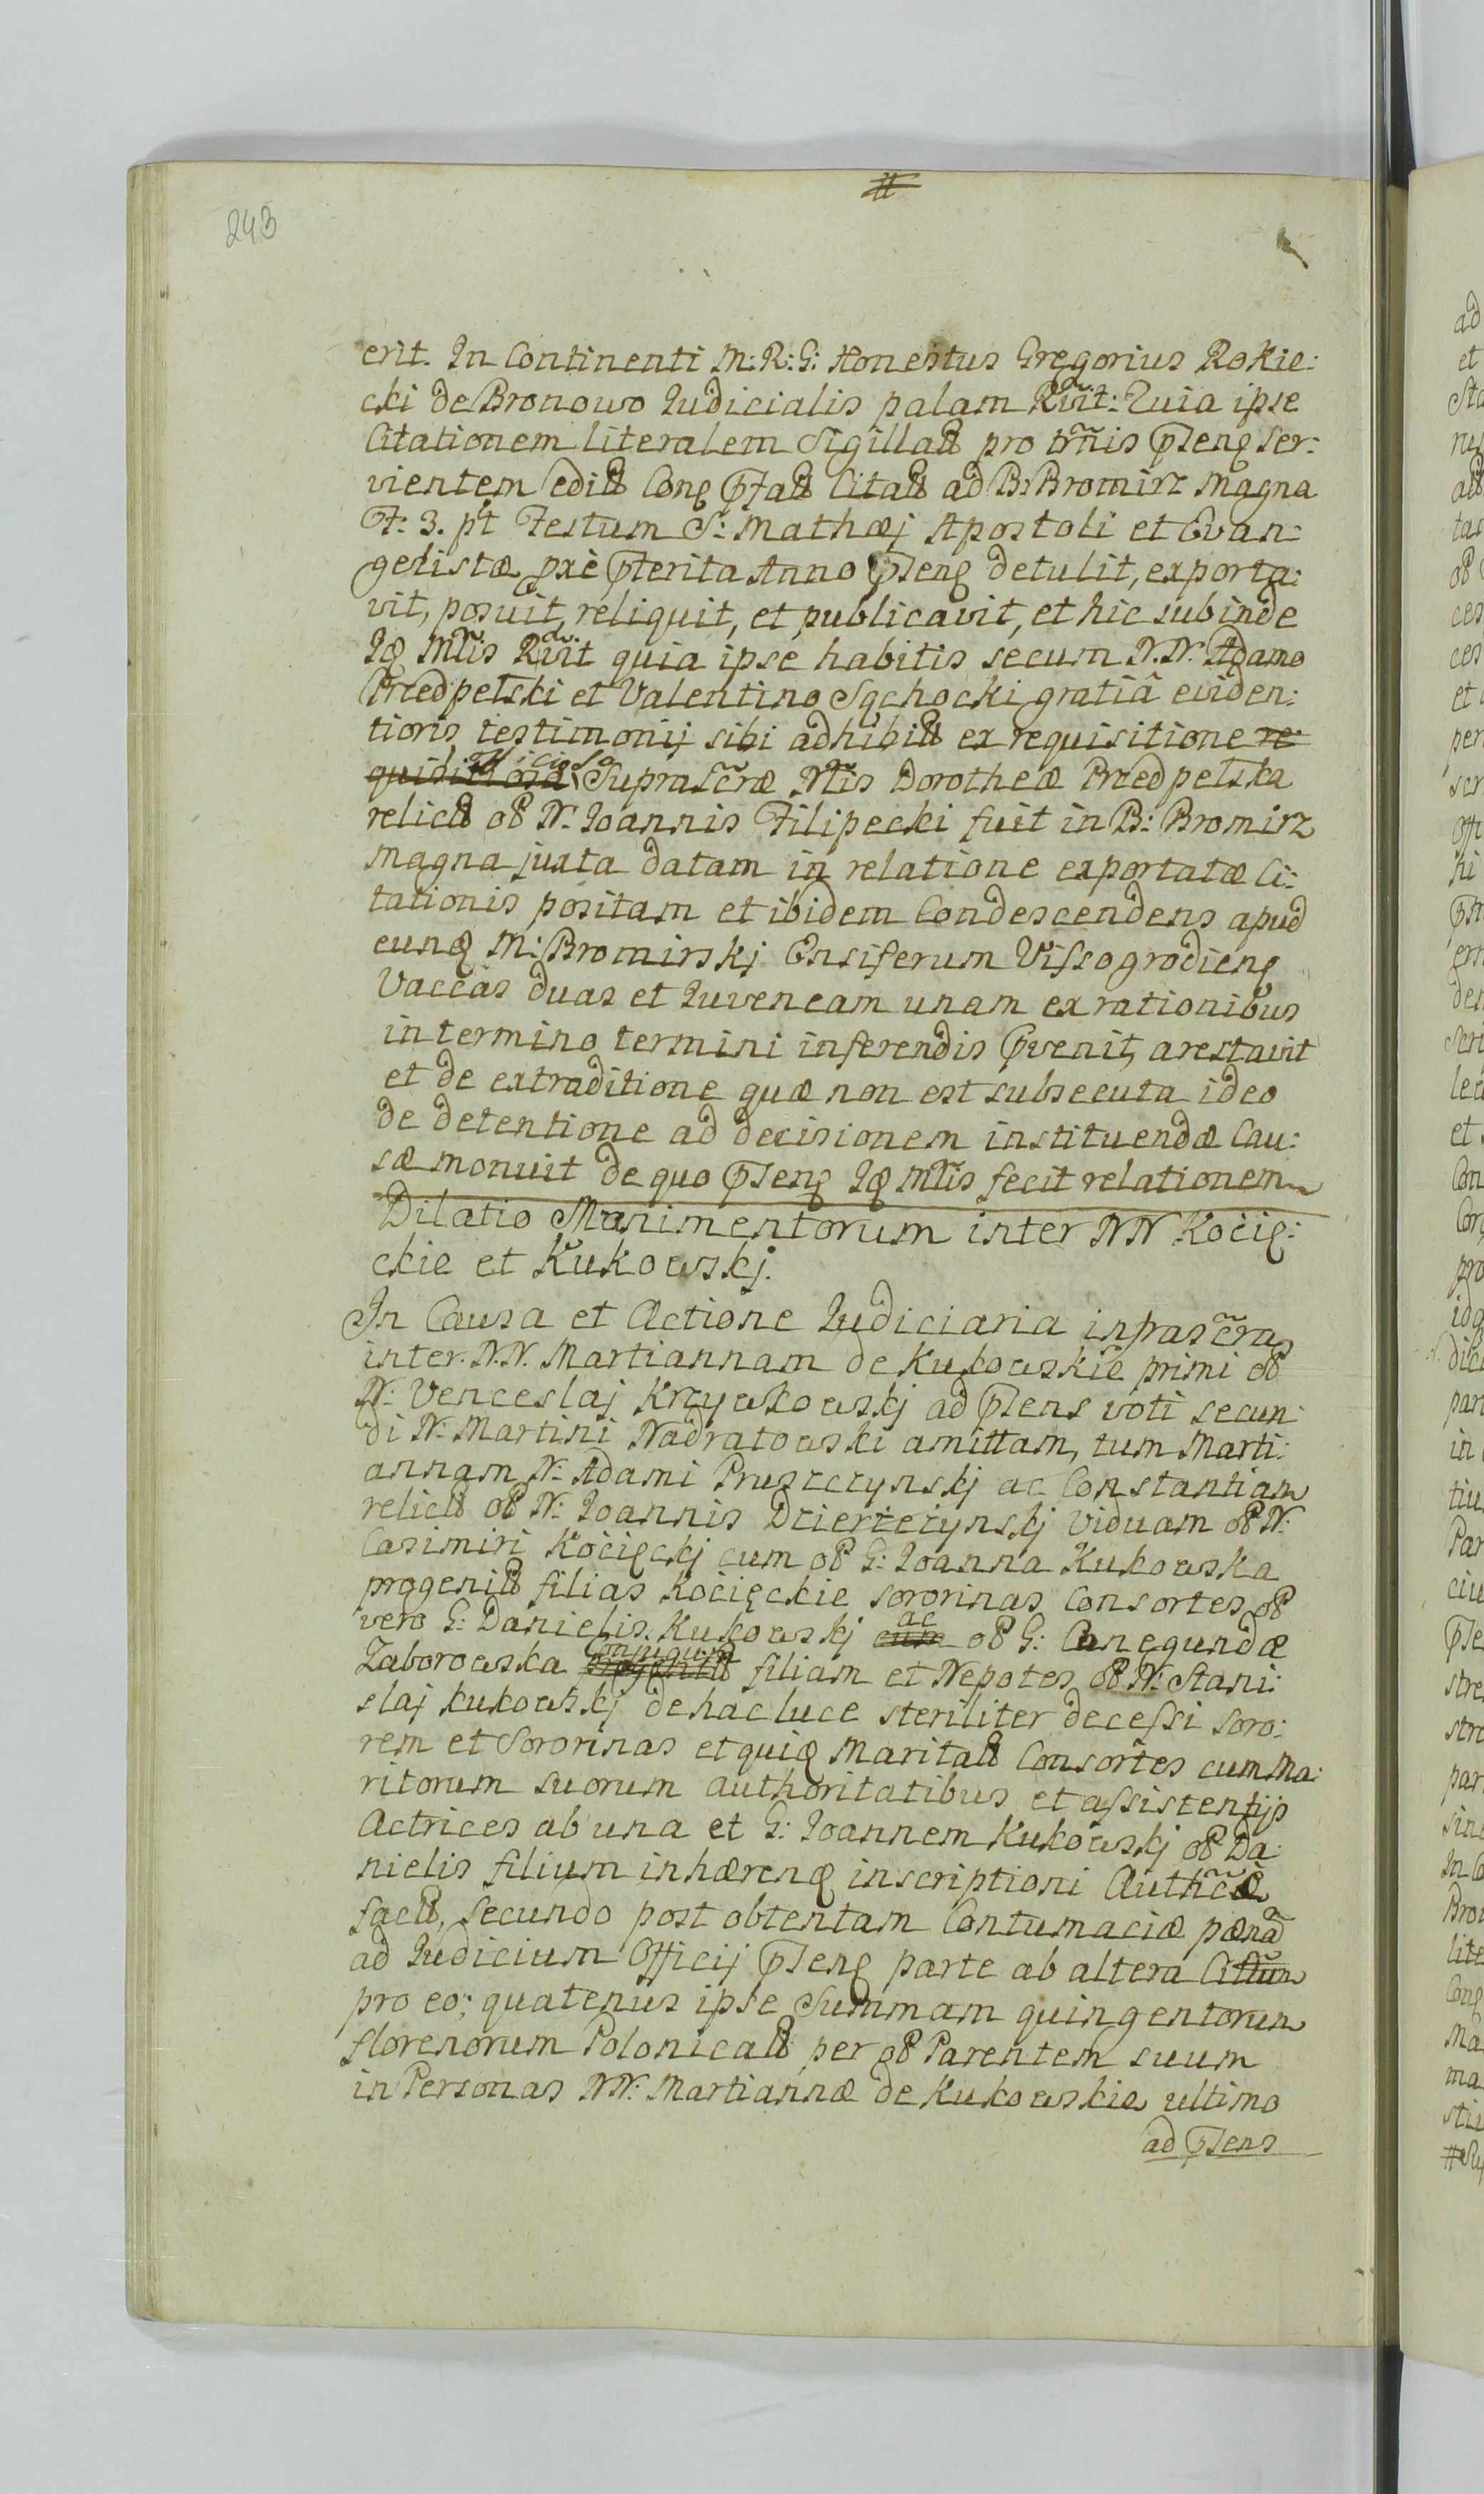 #
243
erit. In Continenti M: R: G: Honestus Gregorius Rokie:
cki de Bronowo Iudicialis palam Rvit: Quia ipse
Citationem literalem Sigillatt pro trñis pñtenq ser:
vientem editt Conq Citatt ad B: Bromirz Magna
F: 3. pt Festum S: Mathæj Apostoli et Evan:
gelistæ præterita Anno detulit, exporta:
vit, posuit, reliquit, et publicavit, et hic subinde
Iq Mtis Rvit quia ipse habitis secum N.N. Adamo
Przedpelski et Valentino Sąchocki gratiâ eviden:
tioris testimonij sibi adhibitt ex requisitione re:
officiosa Suprascræ Ntis Dorotheæ Przedpelska
relictt ol N: Ioannis Filipecki fuit in B: Bromirz
Magna juxta datam in relatione exportatæ Ci:
tationis positam et ibidem Condescendens apud
eunq M: Bromirskj Ensiferum Vissogrodienq
Vaccas duas et Iuvencam unam ex rationibus
in termino termini inferendis pvenit, arestavit
et de extraditione quæ non est subsecuta ideo
de detentione ad decisionem instituendæ Cau:
sæ monuit de quo Iq Mtis fecit relationem
Dilatio Munimentorum inter NN Kocię:
ckie et Kukowskj.
In Causa et Actione Iudiciaria infrascra
inter. N.N. Martiannam de Kukowskie primi ol
N: Venceslaj Krzywkowskj ad pñsens voti secun
di N: Martini Nadratowski amittam, tum Marti:
annam N: Adami Pruszczynskj ac Constantiam
relictt ol N: Ioannis Dzierzęczynskj Viduam ol N:
Casimiri Kocięckj cum ol G: Ioanna Kukowska
progenitt filias Kocięckie sororinas Consortes ol
vero G: Danielis Kukowskj cum ac ol G: Cunegundæ
Zaborowska Conjugum filiam et Nepotes ol N: Stani:
slaj Kukowskj de hac luce steriliter decessi soro:
rem et Sororinas et quiq Maritatt Consortes cum Ma:
ritorum suorum authoritatibus et assistentijs
Actrices ab una et G: Ioannem Kukowskj ol Da:
nielis filium inhærenq inscriptioni Authcæ
factt, secundo post obtentam Contumaciæ pænã
ad Iudicium Officij pñsenq parte ab altera Cittum
pro eo; quatenus ipse Summam quingentorum
florenorum Polonicatt per ol Parentem suum
in Personas NN: Martiannæ de Kukowskie ultimo
ad pñsens